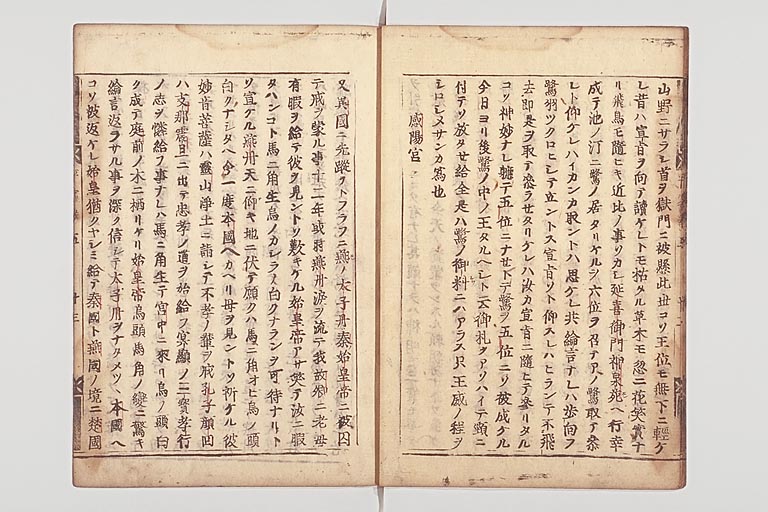 山野ニサラシ首ヲ獄門ニ被懸此世コソ王位モ無下ニ軽ケ
レ昔ハ宣旨ヲ向テ讀ケレトモ枯タル草木モ忽ニ花咲實ナ
リ飛鳥モ隨ヒキ近比ノ事ソカシ延喜御門神泉苑ヘ行幸
成テ池ノ汀ニ鷺ノ居タリケルヲ六位ヲ召テアノ鷺取テ参
レト仰ケレハイカンカ取ントハ思ケレ共綸言ナレハ歩向フ
鷺羽ツクロヒシテ立ントス宣旨ソト仰スレハヒランテ不飛
去即是ヲ取テ参ラせタリケレハ汝カ宣旨ニ隨ヒテ参リタル
コソ神妙ナレ軈テ五位ニナせトテ鷺ヲ五位ニソ被成ケル
今日ヨリ後鷺ノ中ノ王タルヘシト云御札ヲアソハイテ頸ニ
付テソ放タせ給全是ハ鷺ノ御料ニハアラス只王威ノ程ヲ
シロシメサンカ為也
咸陽宮
又異國ニ先蹤ヲトフラフニ燕ノ太子丹秦始皇帝ニ被囚
テ戒ヲ蒙ル事十二年或時燕丹涙ヲ流テ我故郷ニ老母
有暇ヲ給テ彼ヲ見ントソ歎キケル始皇帝アサ笑テ汝ニ暇
タハンコト馬ニ角生烏ノカシラノ白クナランヲ可待ナリト
ソ宣ケル燕丹天ニ仰キ地ニ伏テ願クハ馬ニ角オヒ烏ノ頭
白クナシタヘ今一度本國ヘカヘリ母ヲ見ントソ祈ケル彼
妙音菩薩ハ靈山浄土ニ詣シテ不孝ノ輩ヲ戒孔子顔回
ハ支那震旦ニ出テ忠孝ノ道ヲ始給フ冥顕ノ三寶孝行
ノ志ヲ憐給フ事ナレハ馬ニ角生テ宮中ニ来リ烏ノ頭白
ク成テ庭前ノ木ニ栖リケリ始皇帝烏頭馬角ノ變ニ驚キ
綸言返ラサル事ヲ深ク信シテ太子丹ヲナタメツヽ本國ヘ
コソ被返ケレ始皇猶クヤシミ給テ秦國ト燕國ノ境ニ楚國